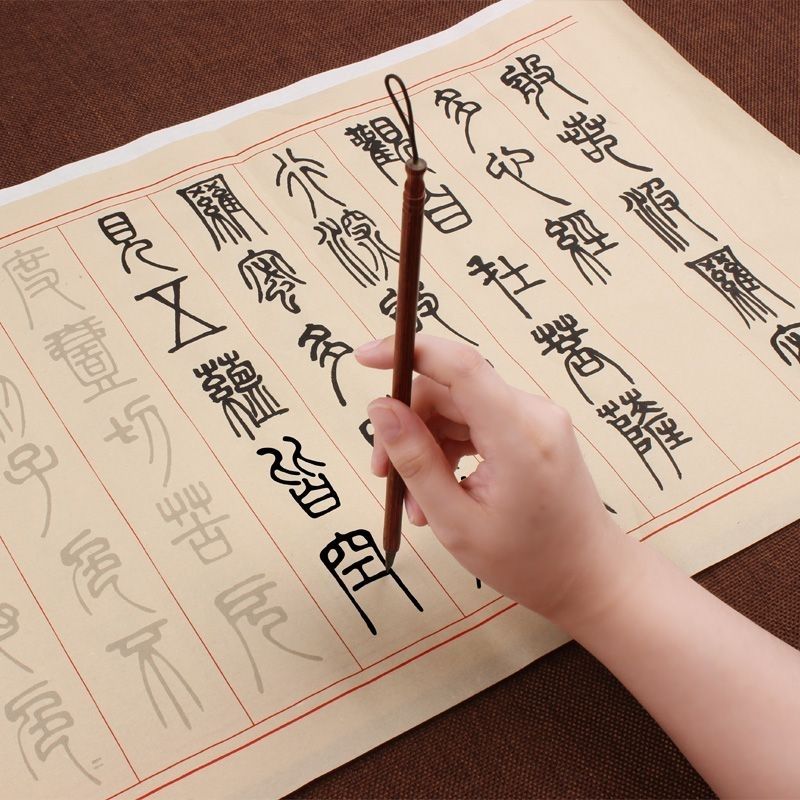 般若波羅
多心經
觀自在菩薩
行深般
羅蜜多
見五蘊皆空
度壹切苦厄
子色不
色